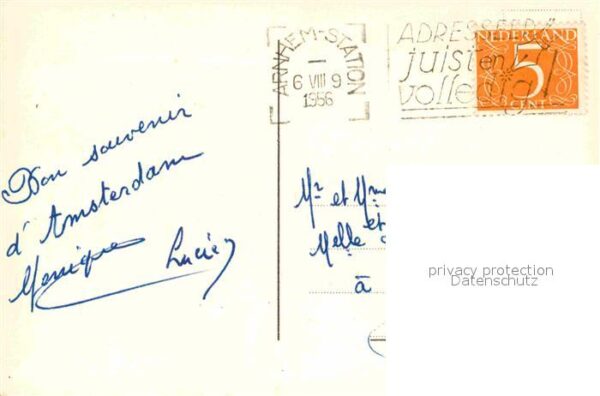 Bon souvenir
d'Amsterdam
Monique Lucien
ARNHEM-STATION
6 VIII 9
1956
ADRESSEER
juist en
volledig!
NEDERLAND
5
CENT
Mr et Mme
et
Melle
à
privacy protection
Datenschutz